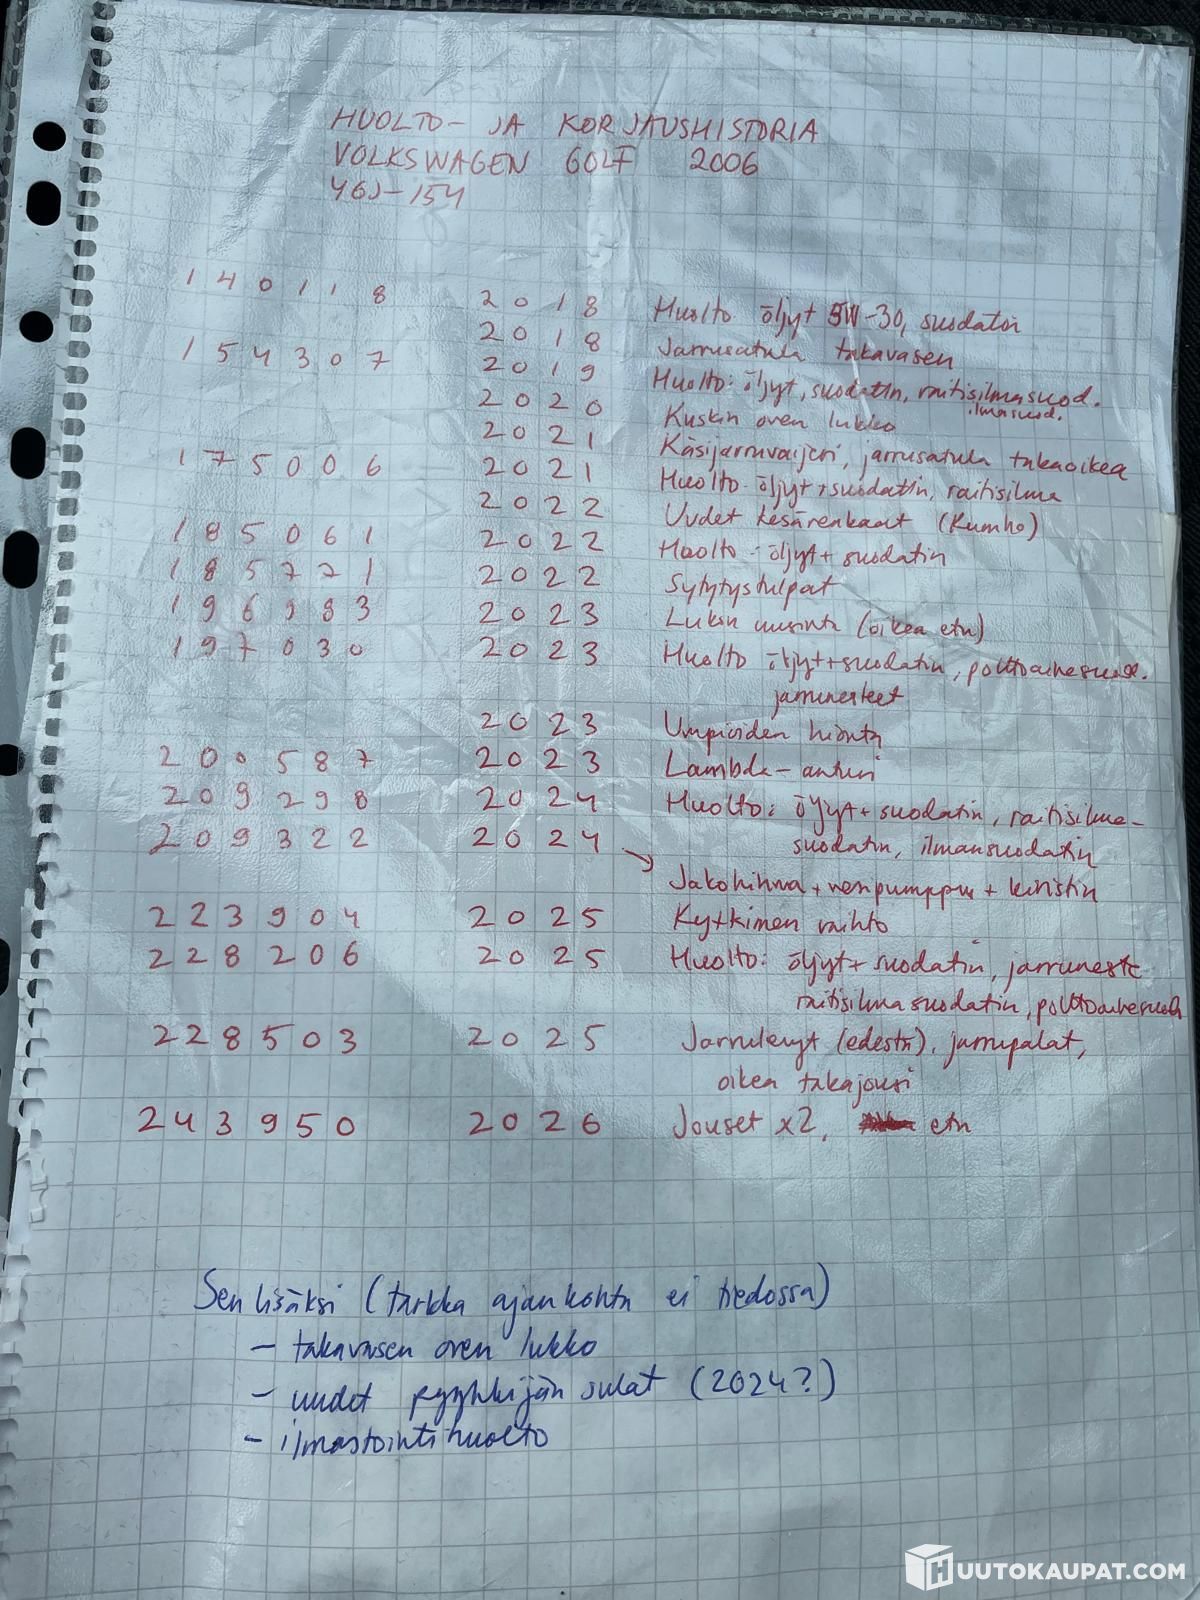 HUOLTO- JA KORJAUSHISTORIA
VOLKSWAGEN GOLF 2006
YGJ-154
140118 2018 Huolto öljyt 5W-30, suodatin
2018 Jarrusatula takavasen
154307 2019 Huolto: öljyt, suodatin, raitisilmasuod.
ilmasuod.
2020 Kuskin oven lukko
2021 Käsijarruvaijeri, jarrusatula takaoikea
175006 2021 Huolto öljyt+suodatin, raitisilma
2022 Uudet kesärenkaat (Kumho)
185061 2022 Huolto: öljyt+suodatin
185771 2022 Sytytystulpat
196983 2023 Lukon uusinta (oikea etu)
197030 2023 Huolto öljyt+suodatin, polttoainesuod.
jarrunesteet
2023 Umpioiden hionta
200587 2023 Lambda-anturi
209298 2024 Huolto: öljyt+suodatin, raitisilma-
suodatin, ilmansuodatin
209322 2024 → Jakohihna+vesipumppu+kiristin
223904 2025 Kytkimen vaihto
228206 2025 Huolto: öljyt+suodatin, jarruneste
raitisilmasuodatin, polttoainesuod
228503 2025 Jarrulevyt (edestä), jarrupalat,
oikea takajousi
243950 2026 Jouset x2, etu
Sen lisäksi (tarkka ajankohta ei tiedossa)
- takavasen oven lukko
- uudet pyyhkijän sulat (2024?)
- ilmastointihuolto
HUUTOKAUPAT.COM